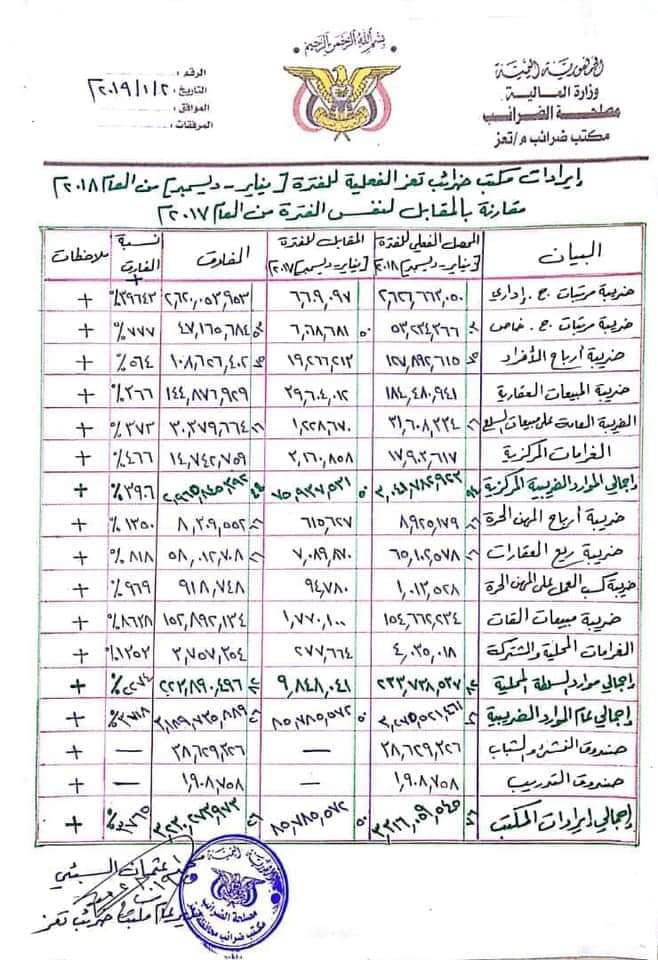 بسم الله الرحمن الرحيم
الجمهورية اليمنية
وزارة المالية
مصلحة الضرائب
مكتب ضرائب م/تعز
الرقم:
التاريخ: ٢٠١٩/١/٢٠
الموافق:
المرفقات:
إيرادات مكتب ضرائب تعز الفعلية للفترة [يناير - ديسمبر] من العام ٢٠١٨
مقارنة بالمقابل لنفس الفترة من العام ٢٠١٧
البيان المحصل الفعلي للفترة [يناير - ديسمبر] ٢٠١٨ المقابل للفترة [يناير - ديسمبر] ٢٠١٧ الفارق نسبة الفارق ملاحظات
ضريبة مرتبات ج. إداري ٢,٦٢٦,٦٦٣,٠٥٠ ٦,٦٠٩,٠٩٧ ٢,٦٢٠,٠٥٣,٩٥٣ ٣٩٦٤٣٪ +
ضريبة مرتبات ج. خاص ٥٣,٢٣٤,٣٦٦ ٤٧,١٦٥,٦٨٤ ٧٧٧٪ +
ضريبة أرباح الأفراد ١٢٧,٨٩٢,٦١٥ ١٩,٢٦٦,٢١٣ ١٠٨,٦٢٦,٤٠٢ ٥٦٤٪ +
ضريبة المبيعات العقارية ١٨٤,٤٨٠,٩٤١ ٣٩,٦٠٤,٠١٢ ١٤٤,٨٧٦,٩٢٩ ٣٦٦٪ +
الضريبة العامة على مبيعات السلع ٣١,٦٠٨,٣٣٤ ١,٢٢٨,٦٧٠ ٣٠,٣٧٩,٦٦٤ +
الغرامات المركزية ١٧,٩٠٣,٦١٧ ٣,١٦٠,٨٥٨ ١٤,٧٤٢,٧٥٩ ٤٦٦٪ +
إجمالي الموارد الضريبية المركزية ٣,٠٤١,٧٨٢,٩٢٣ ٧٥,٩٣٧,٥٣١ ٣٩٠٦٪ +
ضريبة أرباح المهن الحرة ٨,٩٢٥,١٧٩ ٦١٥,٦٢٧ ٨,٣٠٩,٥٥٢ ١٣٥٠٪ +
ضريبة ريع العقارات ٦٥,١٠٢,٥٧٨ ٧,٠٨٩,٨٧٠ ٥٨,٠١٢,٧٠٨ ٨١٨٪ +
ضريبة كسب العمل على المهن الحرة ١,٠١٣,٥٢٨ ٩٤,٧٨٠ ٩١٨,٧٤٨ ٩٦٩٪ +
ضريبة مبيعات القات ١٥٤,٦٦٢,٢٣٤ ١,٧٧٠,١٠٠ ١٥٢,٨٩٢,١٣٤ ٨٦٣٨٪ +
الغرامات المحلية والمشتركة ٤,٠٣٥,٠١٨ ٢٧٧,٦٦٤ ٣,٧٥٧,٣٥٤ ١٣٥٣٪ +
إجمالي موارد السلطة المحلية ٢٣٣,٧٣٨,٥٣٧ ٩,٨٤٨,٠٤١ ٢٢٣,٨٩٠,٤٩٦ ٢٢٧٤٪ +
إجمالي عام الموارد الضريبية ٣,٢٧٥,٥٢١,٤٦١ ٨٥,٧٨٥,٥٧٢ ٣,١٨٩,٧٣٥,٨٨٩ ٣٧١٨٪ +
صندوق النشء والشباب ٣٨,٦٢٩,٣٢٦ — ٣٨,٦٢٩,٣٢٦ — +
صندوق التدريب ١,٩٠٨,٧٥٨ — ١,٩٠٨,٧٥٨ — +
إجمالي إيرادات المكتب ٣,٣١٦,٠٥٩,٥٤٥ ٨٥,٧٨٥,٥٧٢ ٣,٢٣٠,٢٧٣,٩٧٣ ٣٧٦٥٪ +
عثمان السبئي
مدير عام مكتب ضرائب تعز
الجمهورية اليمنية
مصلحة الضرائب
مكتب ضرائب محافظة تعز